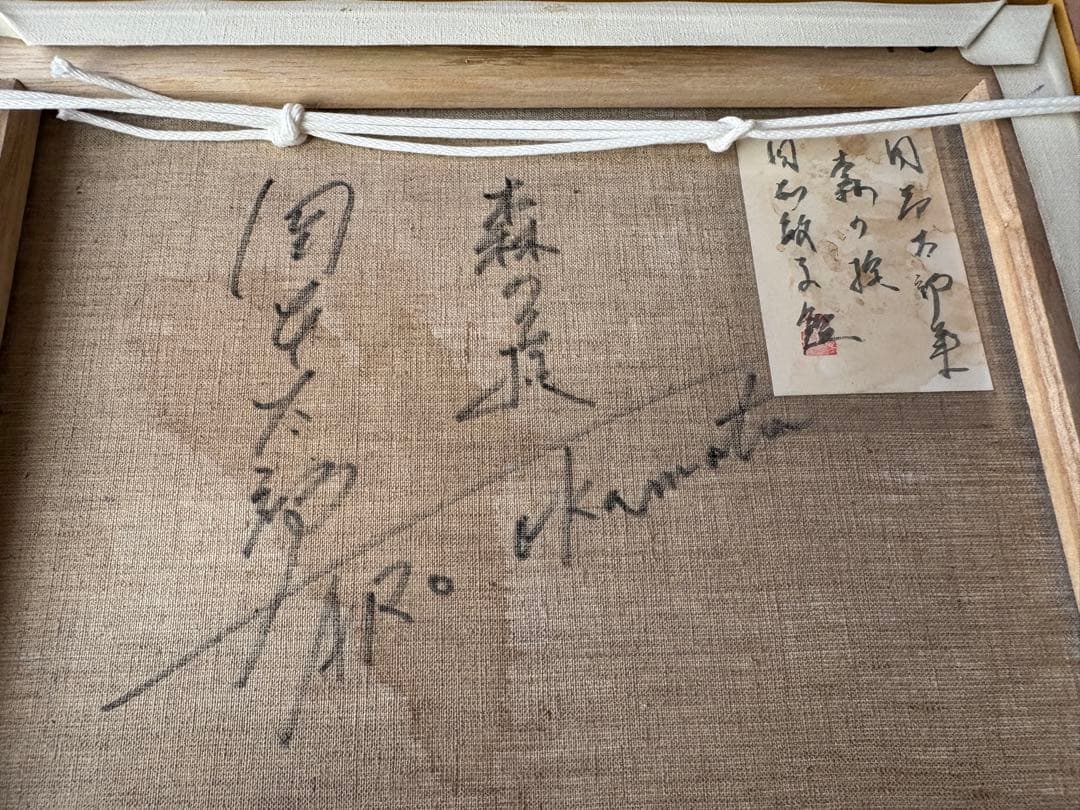 岡本太郎
森の掟
岡本敏子鑑
森の掟
岡本太郎
TARO okamoto